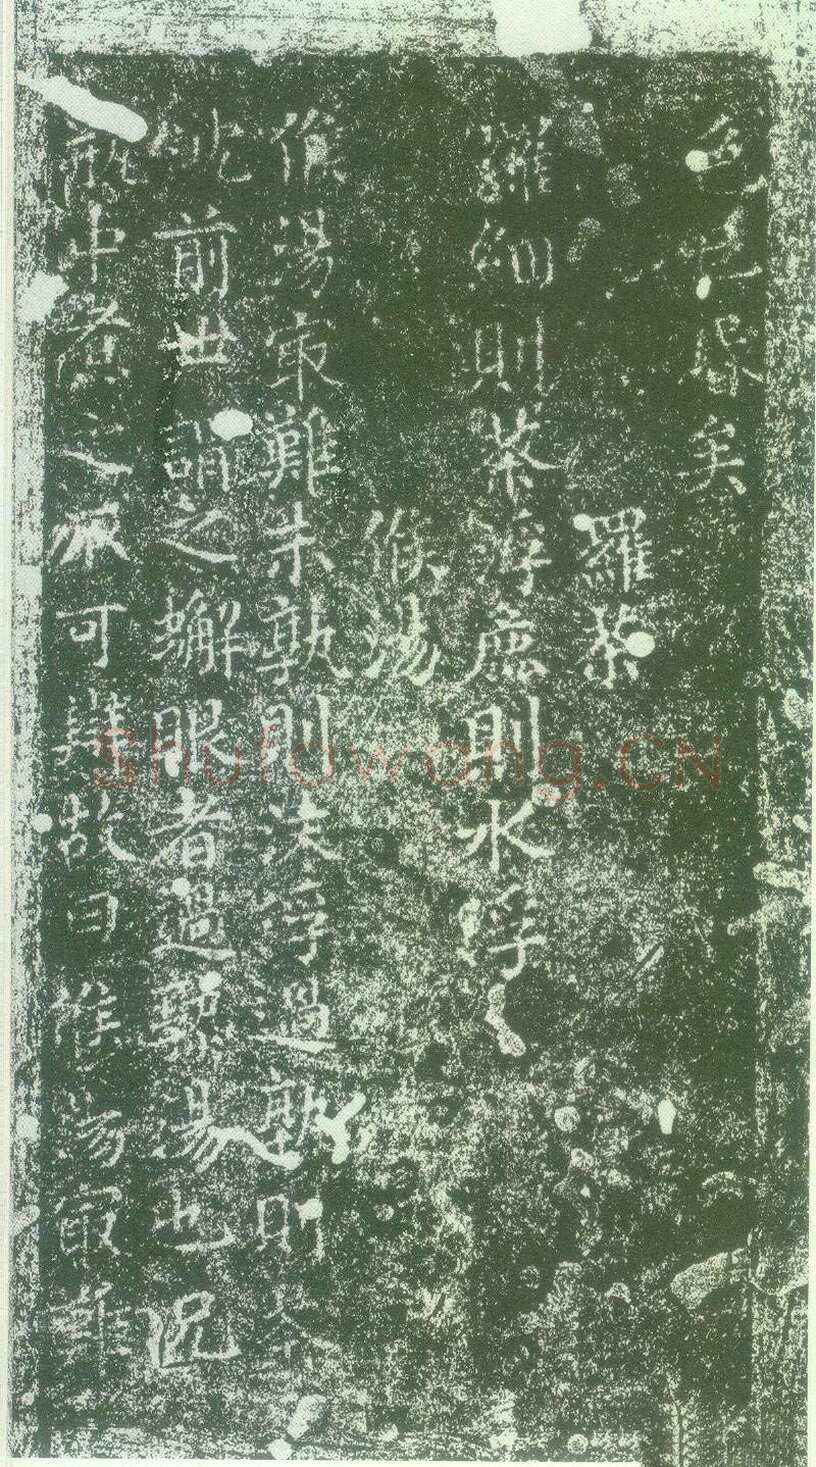 色已昏矣
羅茶
羅細則茶浮麁則水浮
候湯
候湯冣難未孰則沫浮過孰則茶
沈前世謂之蠏眼者過孰湯也沉
瓶中煮之不可辯故曰候湯冣難
Shufawang.CN